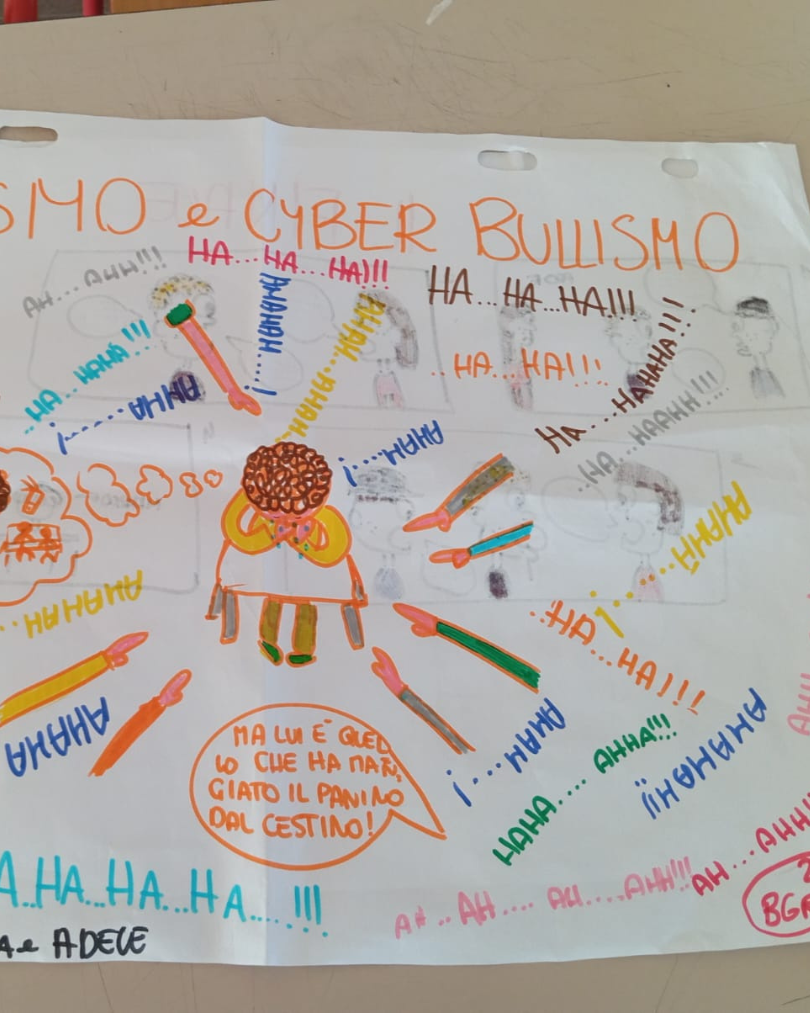 SMO e CYBER BULLISMO
AH...AHH!!!
HA...HA...HA!!!
HA...HA...HA!!!
AHAHAH.....!
AHAH...AHAH..
..HA..HAHA!!!
AHHA......!
..HA...HA!!!
HA....HAHAHA!!!
..HA..HAAHH!!!
AHAH....!
AHAHAH...
..HA...HA!!!
AHAHA
MA LUI È QUEL
LO CHE HA MAN
GIATO IL PANINO
DAL CESTINO!
AHAH....!
HAHA.... AHHA!!!
AHAHAH!!
A..HA...HA...HA....!!!
AH..AH.... AH....AHH!!!
AH...AHH!
A e ADELE